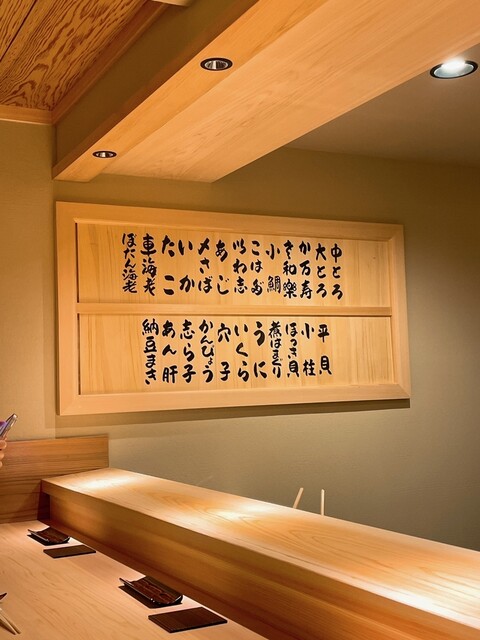 中とろ
大とろ
か万寿
さ和樂
小鯛
こはだ
以わ志
あじ
〆さば
いか
たこ
車海老
ぼたん海老
平貝
小柱
ほっき貝
煮はまぐり
うに
いくら
穴子
かんぴょう
志ら子
あん肝
納豆まき